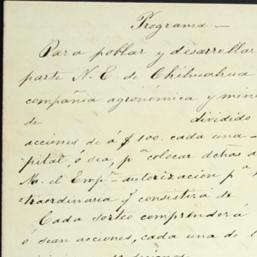 Programa —
Para poblar y desarrollar
parte N. E. de Chihuahua
compañia agronómica y mine
de dividido
acciones de á $100. cada una —
pital, ó sea, pª colocar dchas a
No. el Empº autorización pª
traordinaria y consistirá de
Cada sorteo comprenderá
ó sean acciones, cada una de l